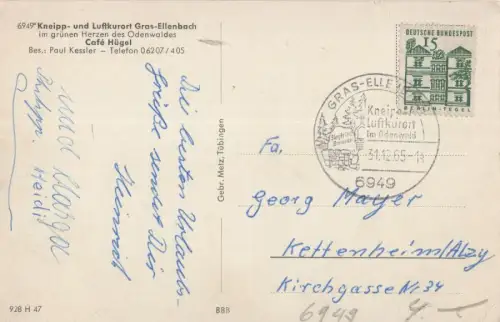 6949 Kneipp- und Luftkurort Gras-Ellenbach
im grünen Herzen des Odenwaldes
Café Hügel
Bes.: Paul Kessler – Telefon 06207/405
Die besten Urlaubs-
grüße sendet Dir
Heinrich
und Marga
Philipp. Heidi
Gebr. Metz, Tübingen
928 H 47
BBB
DEUTSCHE BUNDESPOST
15
BERLIN-TEGEL
GRAS-ELLENBACH
Kneipp-
Luftkurort
im Odenwald
31.12.65-18
6949
Fa,
Georg Mayer
Kettenheim/Alzy
Kirchgasse Nr 34
6949
4.-